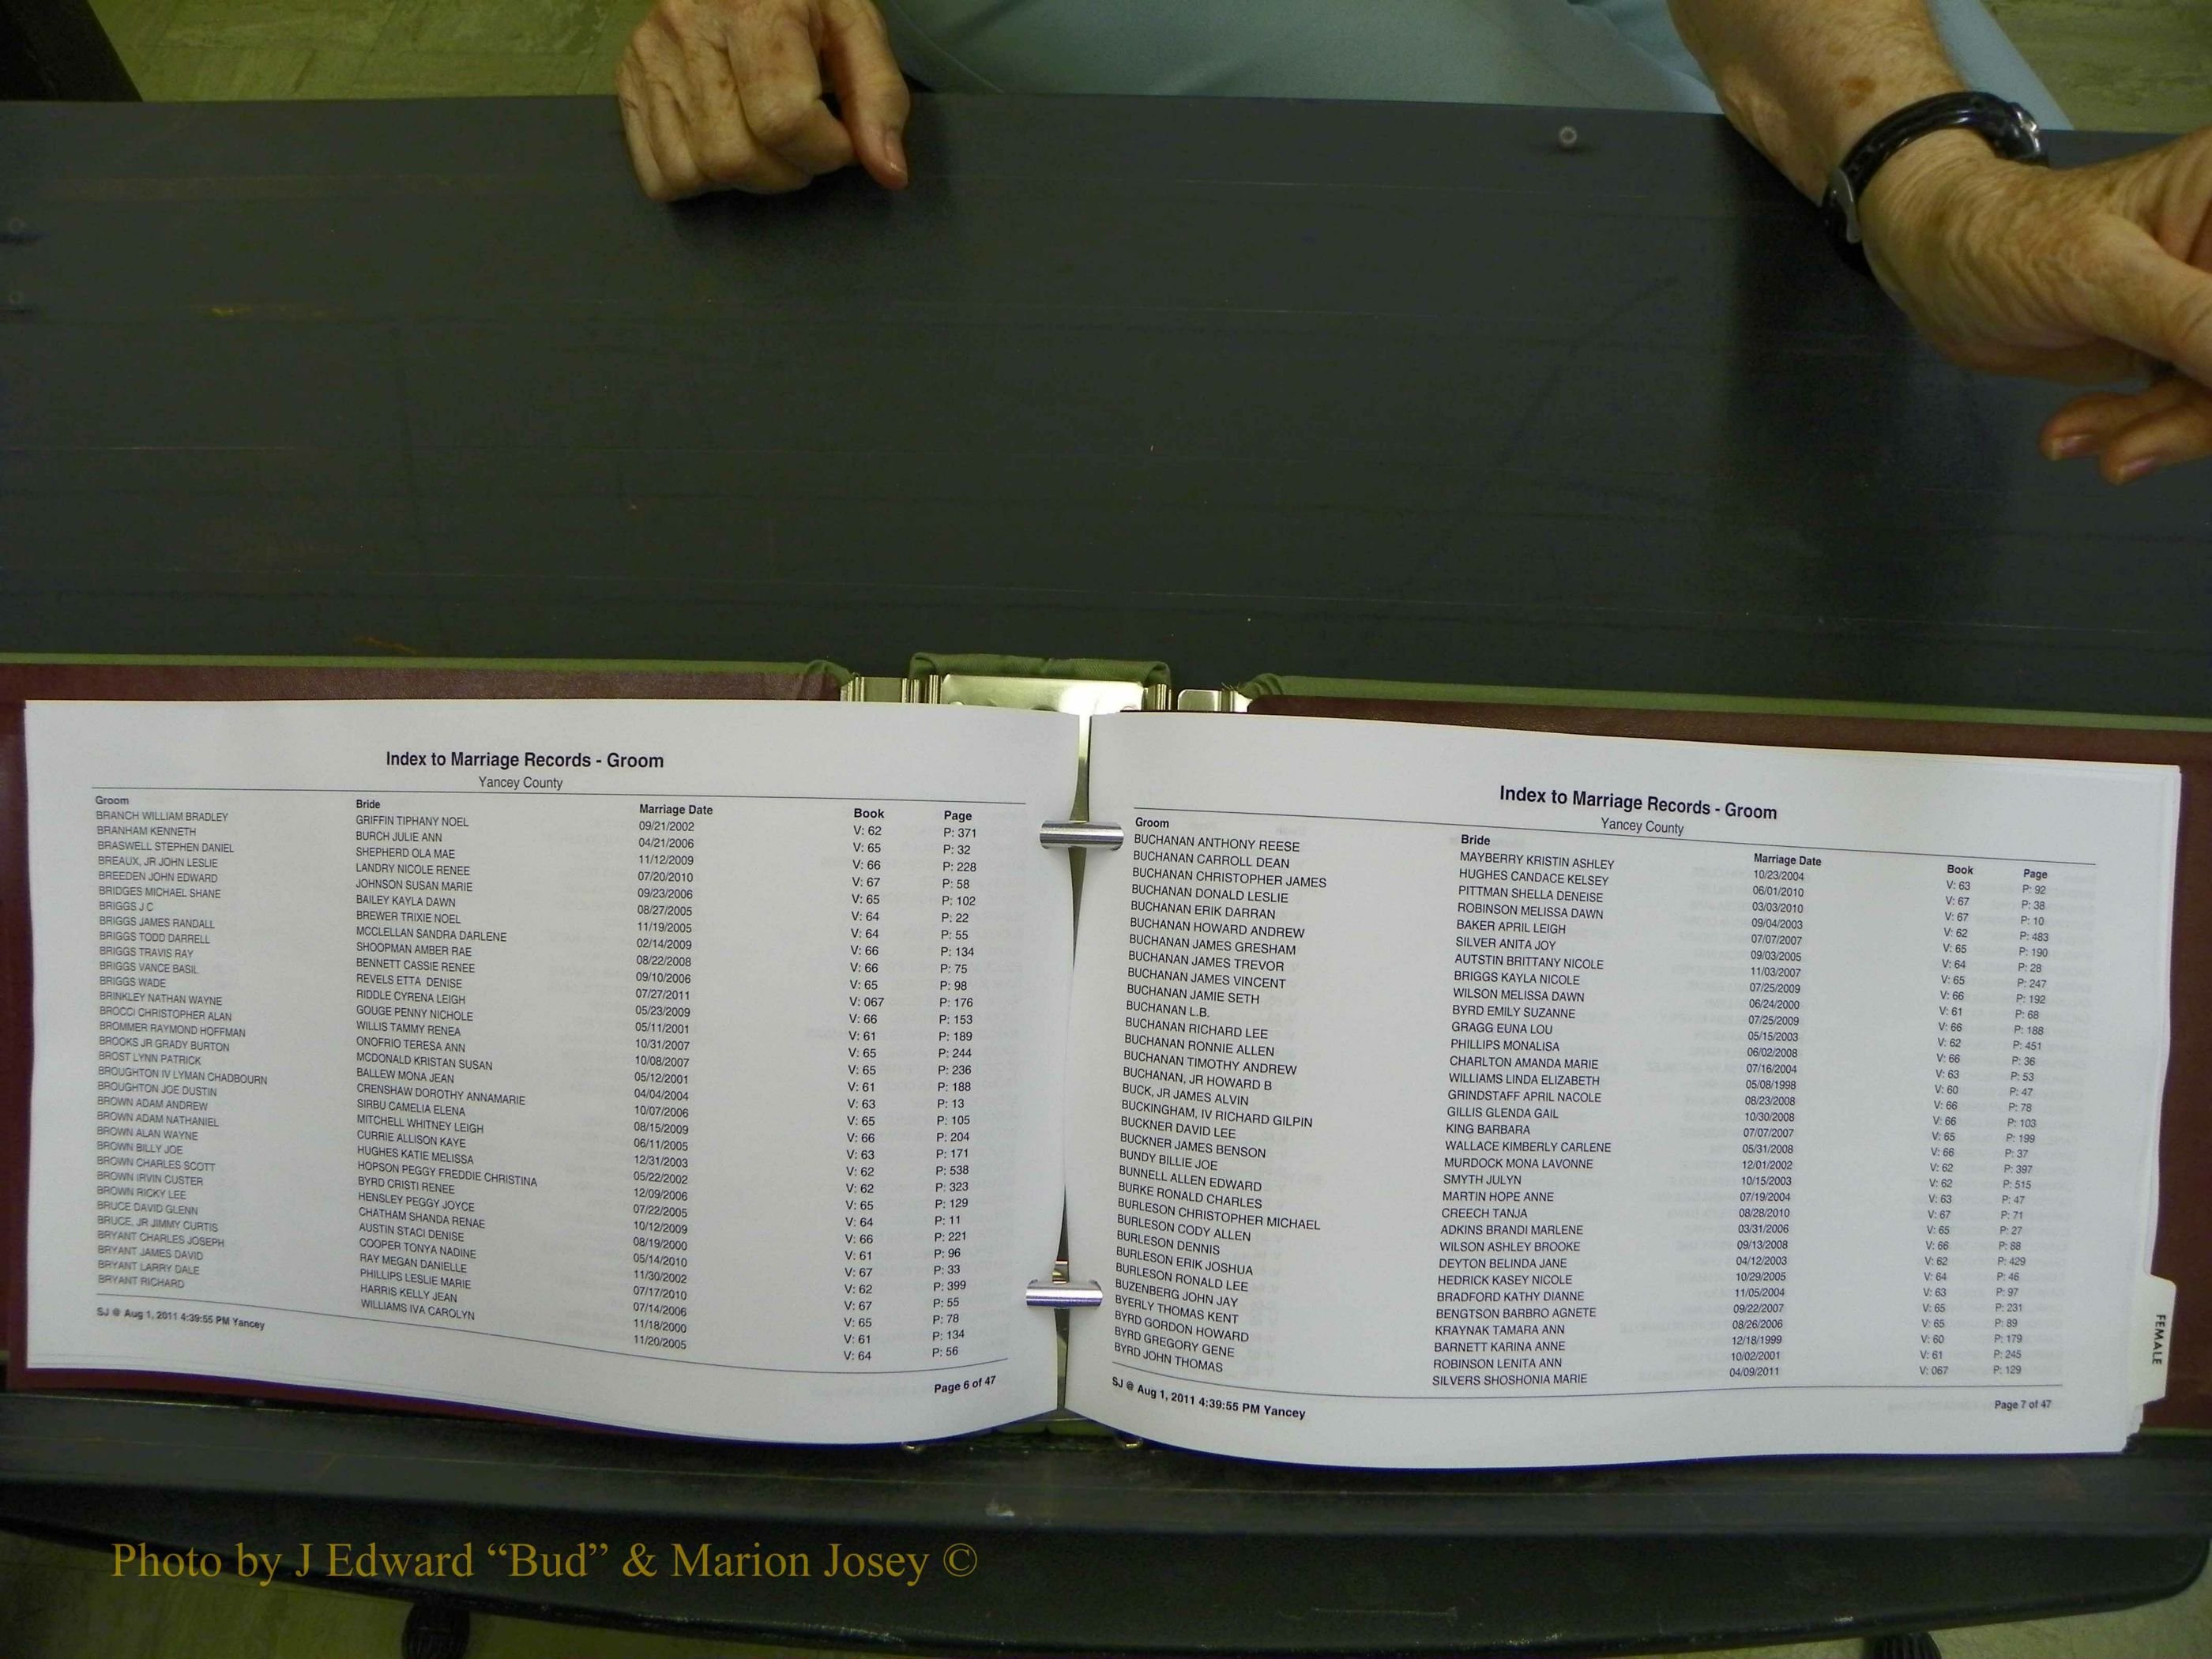 Index to Marriage Records - Groom
Yancey County
Groom Bride Marriage Date Book Page
BRANCH WILLIAM BRADLEY GRIFFIN TIPHANY NOEL 09/21/2002 V: 62 P: 371
BRANHAM KENNETH BURCH JULIE ANN 04/21/2006 V: 65 P: 32
BRASWELL STEPHEN DANIEL SHEPHERD OLA MAE 11/12/2009 V: 66 P: 228
BREAUX, JR JOHN LESLIE LANDRY NICOLE RENEE 07/20/2010 V: 67 P: 58
BREEDEN JOHN EDWARD JOHNSON SUSAN MARIE 09/23/2006 V: 65 P: 102
BRIDGES MICHAEL SHANE BAILEY KAYLA DAWN 08/27/2005 V: 64 P: 22
BRIGGS J C BREWER TRIXIE NOEL 11/19/2005 V: 64 P: 55
BRIGGS JAMES RANDALL MCCLELLAN SANDRA DARLENE 02/14/2009 V: 66 P: 134
BRIGGS TODD DARRELL SHOOPMAN AMBER RAE 08/22/2008 V: 66 P: 75
BRIGGS TRAVIS RAY BENNETT CASSIE RENEE 09/10/2006 V: 65 P: 98
BRIGGS VANCE BASIL REVELS ETTA DENISE 07/27/2011 V: 067 P: 176
BRIGGS WADE RIDDLE CYRENA LEIGH 05/23/2009 V: 66 P: 153
BRINKLEY NATHAN WAYNE GOUGE PENNY NICHOLE 05/11/2001 V: 61 P: 189
BROCCI CHRISTOPHER ALAN WILLIS TAMMY RENEA 10/31/2007 V: 65 P: 244
BROMMER RAYMOND HOFFMAN ONOFRIO TERESA ANN 10/08/2007 V: 65 P: 236
BROOKS JR GRADY BURTON MCDONALD KRISTAN SUSAN 05/12/2001 V: 61 P: 188
BROST LYNN PATRICK BALLEW MONA JEAN 04/04/2004 V: 63 P: 13
BROUGHTON IV LYMAN CHADBOURN CRENSHAW DOROTHY ANNAMARIE 10/07/2006 V: 65 P: 105
BROUGHTON JOE DUSTIN SIRBU CAMELIA ELENA 08/15/2009 V: 66 P: 204
BROWN ADAM ANDREW MITCHELL WHITNEY LEIGH 06/11/2005 V: 63 P: 171
BROWN ADAM NATHANIEL CURRIE ALLISON KAYE 12/31/2003 V: 62 P: 538
BROWN ALAN WAYNE HUGHES KATIE MELISSA 05/22/2002 V: 62 P: 323
BROWN BILLY JOE HOPSON PEGGY FREDDIE CHRISTINA 12/09/2006 V: 65 P: 129
BROWN CHARLES SCOTT BYRD CRISTI RENEE 07/22/2005 V: 64 P: 11
BROWN IRVIN CUSTER HENSLEY PEGGY JOYCE 10/12/2009 V: 66 P: 221
BROWN RICKY LEE CHATHAM SHANDA RENAE 08/19/2000 V: 61 P: 96
BRUCE DAVID GLENN AUSTIN STACI DENISE 05/14/2010 V: 67 P: 33
BRUCE, JR JIMMY CURTIS COOPER TONYA NADINE 11/30/2002 V: 62 P: 399
BRYANT CHARLES JOSEPH RAY MEGAN DANIELLE 07/17/2010 V: 67 P: 55
BRYANT JAMES DAVID PHILLIPS LESLIE MARIE 07/14/2006 V: 65 P: 78
BRYANT LARRY DALE HARRIS KELLY JEAN 11/18/2000 V: 61 P: 134
BRYANT RICHARD WILLIAMS IVA CAROLYN 11/20/2005 V: 64 P: 56
SJ @ Aug 1, 2011 4:39:55 PM Yancey Page 6 of 47
Index to Marriage Records - Groom
Yancey County
Groom Bride Marriage Date Book Page
BUCHANAN ANTHONY REESE MAYBERRY KRISTIN ASHLEY 10/23/2004 V: 63 P: 92
BUCHANAN CARROLL DEAN HUGHES CANDACE KELSEY 06/01/2010 V: 67 P: 38
BUCHANAN CHRISTOPHER JAMES PITTMAN SHELLA DENEISE 03/03/2010 V: 67 P: 10
BUCHANAN DONALD LESLIE ROBINSON MELISSA DAWN 09/04/2003 V: 62 P: 483
BUCHANAN ERIK DARRAN BAKER APRIL LEIGH 07/07/2007 V: 65 P: 190
BUCHANAN HOWARD ANDREW SILVER ANITA JOY 09/03/2005 V: 64 P: 28
BUCHANAN JAMES GRESHAM AUTSTIN BRITTANY NICOLE 11/03/2007 V: 65 P: 247
BUCHANAN JAMES TREVOR BRIGGS KAYLA NICOLE 07/25/2009 V: 66 P: 192
BUCHANAN JAMES VINCENT WILSON MELISSA DAWN 06/24/2000 V: 61 P: 68
BUCHANAN JAMIE SETH BYRD EMILY SUZANNE 07/25/2009 V: 66 P: 188
BUCHANAN L.B. GRAGG EUNA LOU 05/15/2003 V: 62 P: 451
BUCHANAN RICHARD LEE PHILLIPS MONALISA 06/02/2008 V: 66 P: 36
BUCHANAN RONNIE ALLEN CHARLTON AMANDA MARIE 07/16/2004 V: 63 P: 53
BUCHANAN TIMOTHY ANDREW WILLIAMS LINDA ELIZABETH 05/08/1998 V: 60 P: 47
BUCHANAN, JR HOWARD B GRINDSTAFF APRIL NACOLE 08/23/2008 V: 66 P: 78
BUCK, JR JAMES ALVIN GILLIS GLENDA GAIL 10/30/2008 V: 66 P: 103
BUCKINGHAM, IV RICHARD GILPIN KING BARBARA 07/07/2007 V: 65 P: 199
BUCKNER DAVID LEE WALLACE KIMBERLY CARLENE 05/31/2008 V: 66 P: 37
BUCKNER JAMES BENSON MURDOCK MONA LAVONNE 12/01/2002 V: 62 P: 397
BUNDY BILLIE JOE SMYTH JULYN 10/15/2003 V: 62 P: 515
BUNNELL ALLEN EDWARD MARTIN HOPE ANNE 07/19/2004 V: 63 P: 47
BURKE RONALD CHARLES CREECH TANJA 08/28/2010 V: 67 P: 71
BURLESON CHRISTOPHER MICHAEL ADKINS BRANDI MARLENE 03/31/2006 V: 65 P: 27
BURLESON CODY ALLEN WILSON ASHLEY BROOKE 09/13/2008 V: 66 P: 88
BURLESON DENNIS DEYTON BELINDA JANE 04/12/2003 V: 62 P: 429
BURLESON ERIK JOSHUA HEDRICK KASEY NICOLE 10/29/2005 V: 64 P: 46
BURLESON RONALD LEE BRADFORD KATHY DIANNE 11/05/2004 V: 63 P: 97
BUZENBERG JOHN JAY BENGTSON BARBRO AGNETE 09/22/2007 V: 65 P: 231
BYERLY THOMAS KENT KRAYNAK TAMARA ANN 08/26/2006 V: 65 P: 89
BYRD GORDON HOWARD BARNETT KARINA ANNE 12/18/1999 V: 60 P: 179
BYRD GREGORY GENE ROBINSON LENITA ANN 10/02/2001 V: 61 P: 245
BYRD JOHN THOMAS SILVERS SHOSHONIA MARIE 04/09/2011 V: 067 P: 129
SJ @ Aug 1, 2011 4:39:55 PM Yancey Page 7 of 47
FEMALE
Photo by J Edward “Bud” & Marion Josey ©